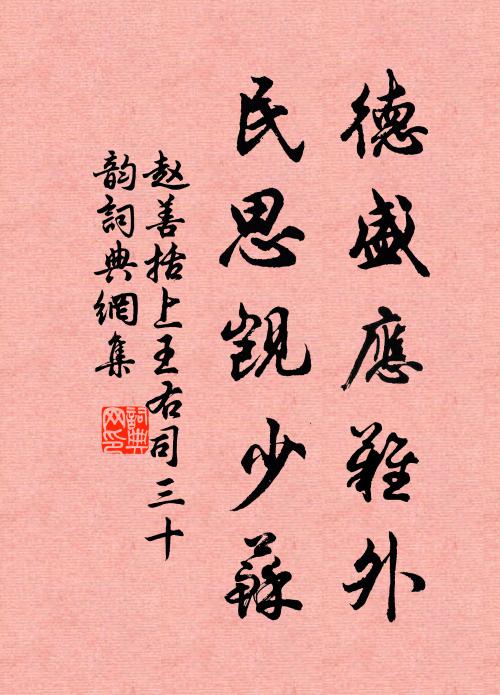 德盛應難外
民思覬少蘇
赵善括上王右司三十
韵詞典網集
詞典
网印